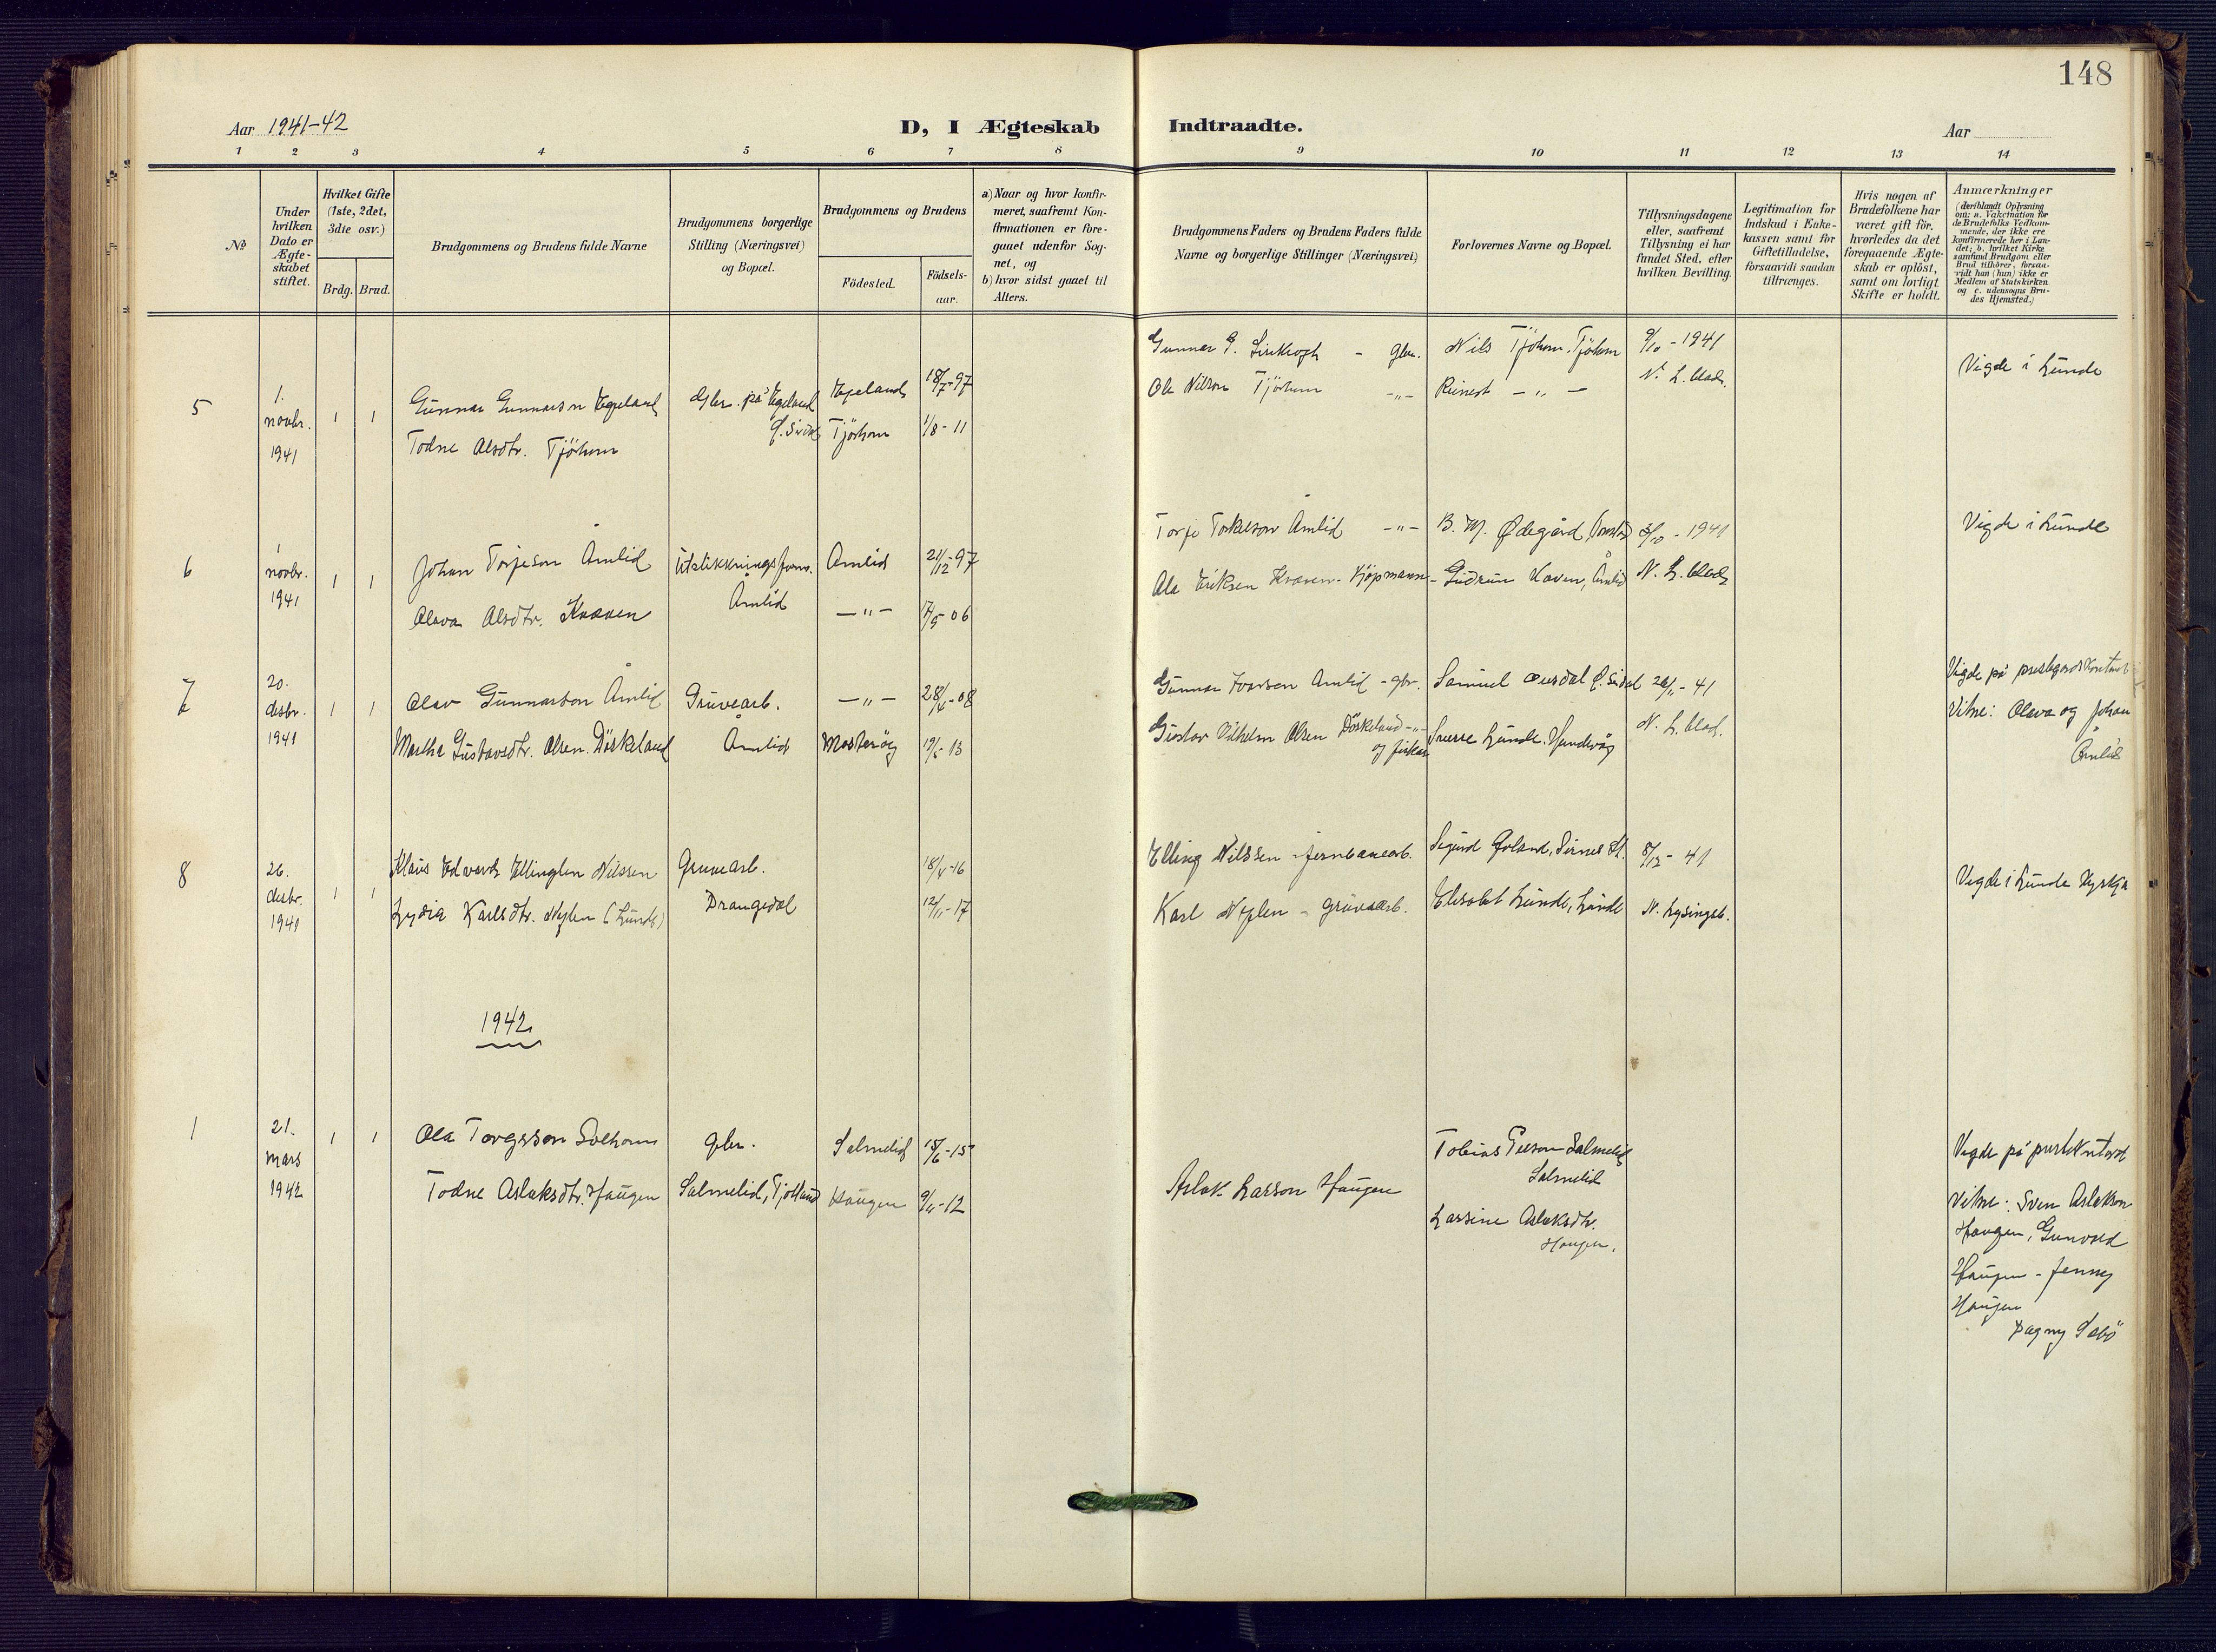 148
Aar 1941-42
D, I Ægteskab Indtraadte.
Aar
1 2 3 4 5 6 7 8 9 10 11 12 13 14
No
Under
hvilken
Dato er
Ægte-
skabet
stiftet.
Hvilket Gifte
(1ste, 2det,
3die osv.)
Brdg. Brud.
Brudgommens og Brudens fulde Navne
Brudgommens borgerlige
Stilling (Næringsvei)
og Bopæl.
Brudgommens og Brudens
Födested.
Födsels-
aar.
a) Naar og hvor konfir-
meret, saafremt Kon-
firmationen er fore-
gaaet udenfor Sog-
net, og
b) hvor sidst gaaet til
Alters.
Brudgommens Faders og Brudens Faders fulde
Navne og borgerlige Stillinger (Næringsvei)
Forlovernes Navne og Bopæl.
Tillysningsdagene
eller, saafremt
Tillysning ei har
fundet Sted, efter
hvilken Bevilling.
Legitimation for
Indskud i Enke-
kassen samt for
Giftetilladelse,
forsaavidt saadan
tiltrænges.
Hvis nogen af
Brudefolkene har
været gift før,
hvorledes da det
foregaaende Ægte-
skab er oplöst,
samt om lovligt
Skifte er holdt.
Anmærkninger
(deriblandt Oplysning
om: a. Vakcination for
de Brudefolks Vedkom-
mende, der ikke ere
konfirmerede her i Lan-
det; b. hvilket Kirke-
samfund Brudgom eller
Brud tilhörer, forsaa-
vidt han (hun) ikke er
Medlem af Statskirken
og c. udensogns Bru-
des Hjemsted.)
5
1.
novbr.
1941
1 1
Gunnar Gunnarson Egeland
Todne Olsdtr. Tjörhom
Gbr. på Egeland
Ö. Sirdal
Egeland
Tjörhom
18/7-97
1/8-11
Gunnar G. - Gbr.
Ola Nilson Tjörhom -"-
Nils Tjörhom, Tjörhom
Reinert -"-
9/10-1941
N. L. blad.
Vigde i Lunde
6
1
novbr.
1941
1 1
Johan Torjeson Åmlid
Olava Olsdtr. Kvæven
Åmlid
Åmlid
-"-
21/12-97
17/5-06
Torje Torkelson Åmlid -"-
Ola Eriksen Kvæven - Kjøpmann
B. M. Ødegård
Gudrun Kvæven, Åmlid
/10-1941
N. L. blad.
Vigde i Lunde
7
20.
desbr.
1941
1 1
Olav Gunnarson Åmlid
Martha Gustavsdtr. Olsen Döskeland
Gruvearb.
Åmlid
-"-
Mosterøy
28/4-08
19/5-13
Gunnar Ivarsen Åmlid - gbr.
Gustav Vilhelm Olsen Döskeland -"-
og fisker
Samuel Ousdal Ö. Sirdal
Sverre Lunde, Hundvåg
26/11-41
N. L. blad.
Vigde på prestegardskontoret
Vitne: Olava og Johan
Åmlid
8
26.
desbr.
1941
1 1
Klaus Edvard Ellingsen Nilssen
Lydia Karlsdtr. Nylen (Lunde)
Gruvearb.
Drangedal
18/4-16
12/11-17
Elling Nilssen - jernbanearb.
Karl Nylen - gruvearb.
Sigurd Goland, Sirnes st.
Elisabet Lunde, Lunde
8/12-41
N. Lysingsb.
Vigde i Lunde Kyrkja
1942
1
21.
mars
1942
1 1
Ola Torgersson Solhom
Todne Aslaksdtr. Haugen
gbr.
Salmelid, Tjotland
Salmelid
Haugen
15/6-15
9/11-12
Aslak Larson Haugen
Tobias Peerson Salmelid
Salmelid
Larsine Aslaksdtr.
Haugen.
Vigde på prestekontoret
Vitne: Sven Aslakson
Haugen, Gunvald
Haugen - Jenny
Haugen
Dagny Sæbö